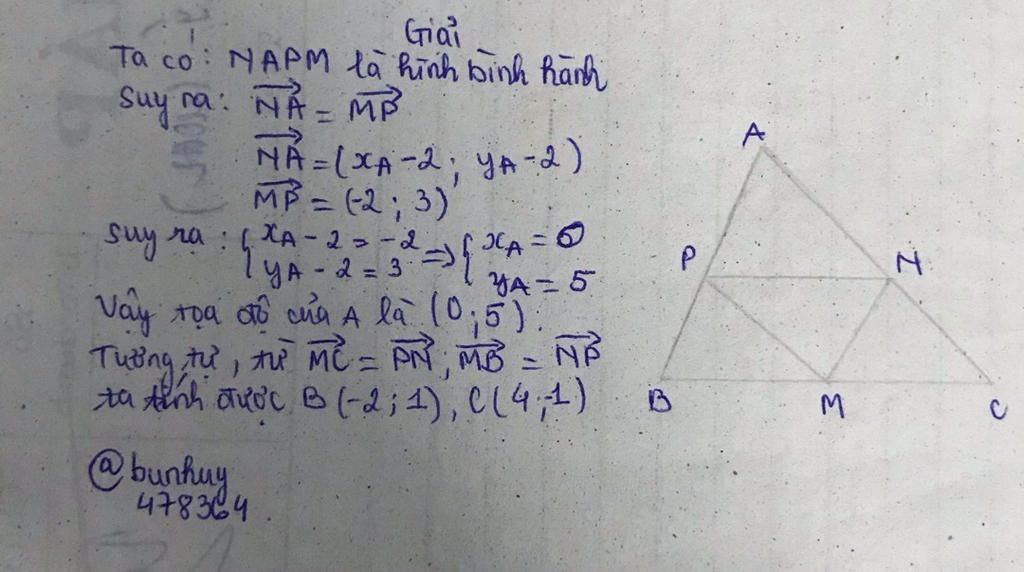 Giải
Ta có: NAPM là hình bình hành
Suy ra: \overrightarrow{NA} = \overrightarrow{MP}
\overrightarrow{NA} = (x_A - 2; y_A - 2)
\overrightarrow{MP} = (-2; 3)
Suy ra: { x_A - 2 = -2 => { x_A = 0
y_A - 2 = 3 y_A = 5
Vậy tọa độ của A là (0;5).
Tương tự, từ \overrightarrow{MC} = \overrightarrow{PN}; \overrightarrow{MB} = \overrightarrow{NP}
ta tính được B(-2;1), C(4;-1)
@bunhuy
478364
A
P
N
B
M
C